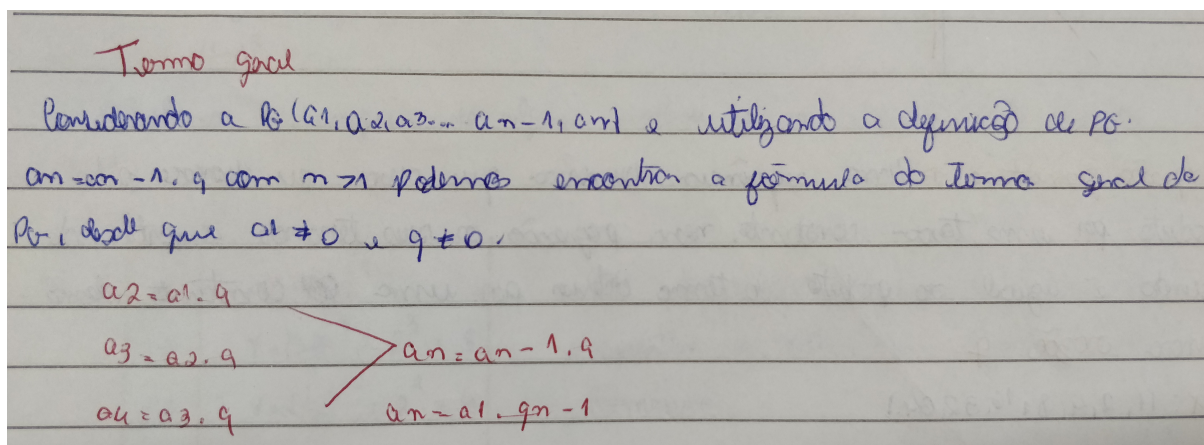 Termo geral
Considerando a PG (a1, a2, a3... an-1, an) e utilizando a definição de PG.
an = an-1. q com n>1 podemos encontrar a fórmula do termo geral de
PG, desde que a1 ≠ 0 e q ≠ 0.
a2 = a1. q
a3 = a2. q an = an-1. q
a4 = a3. q an = a1. qn-1